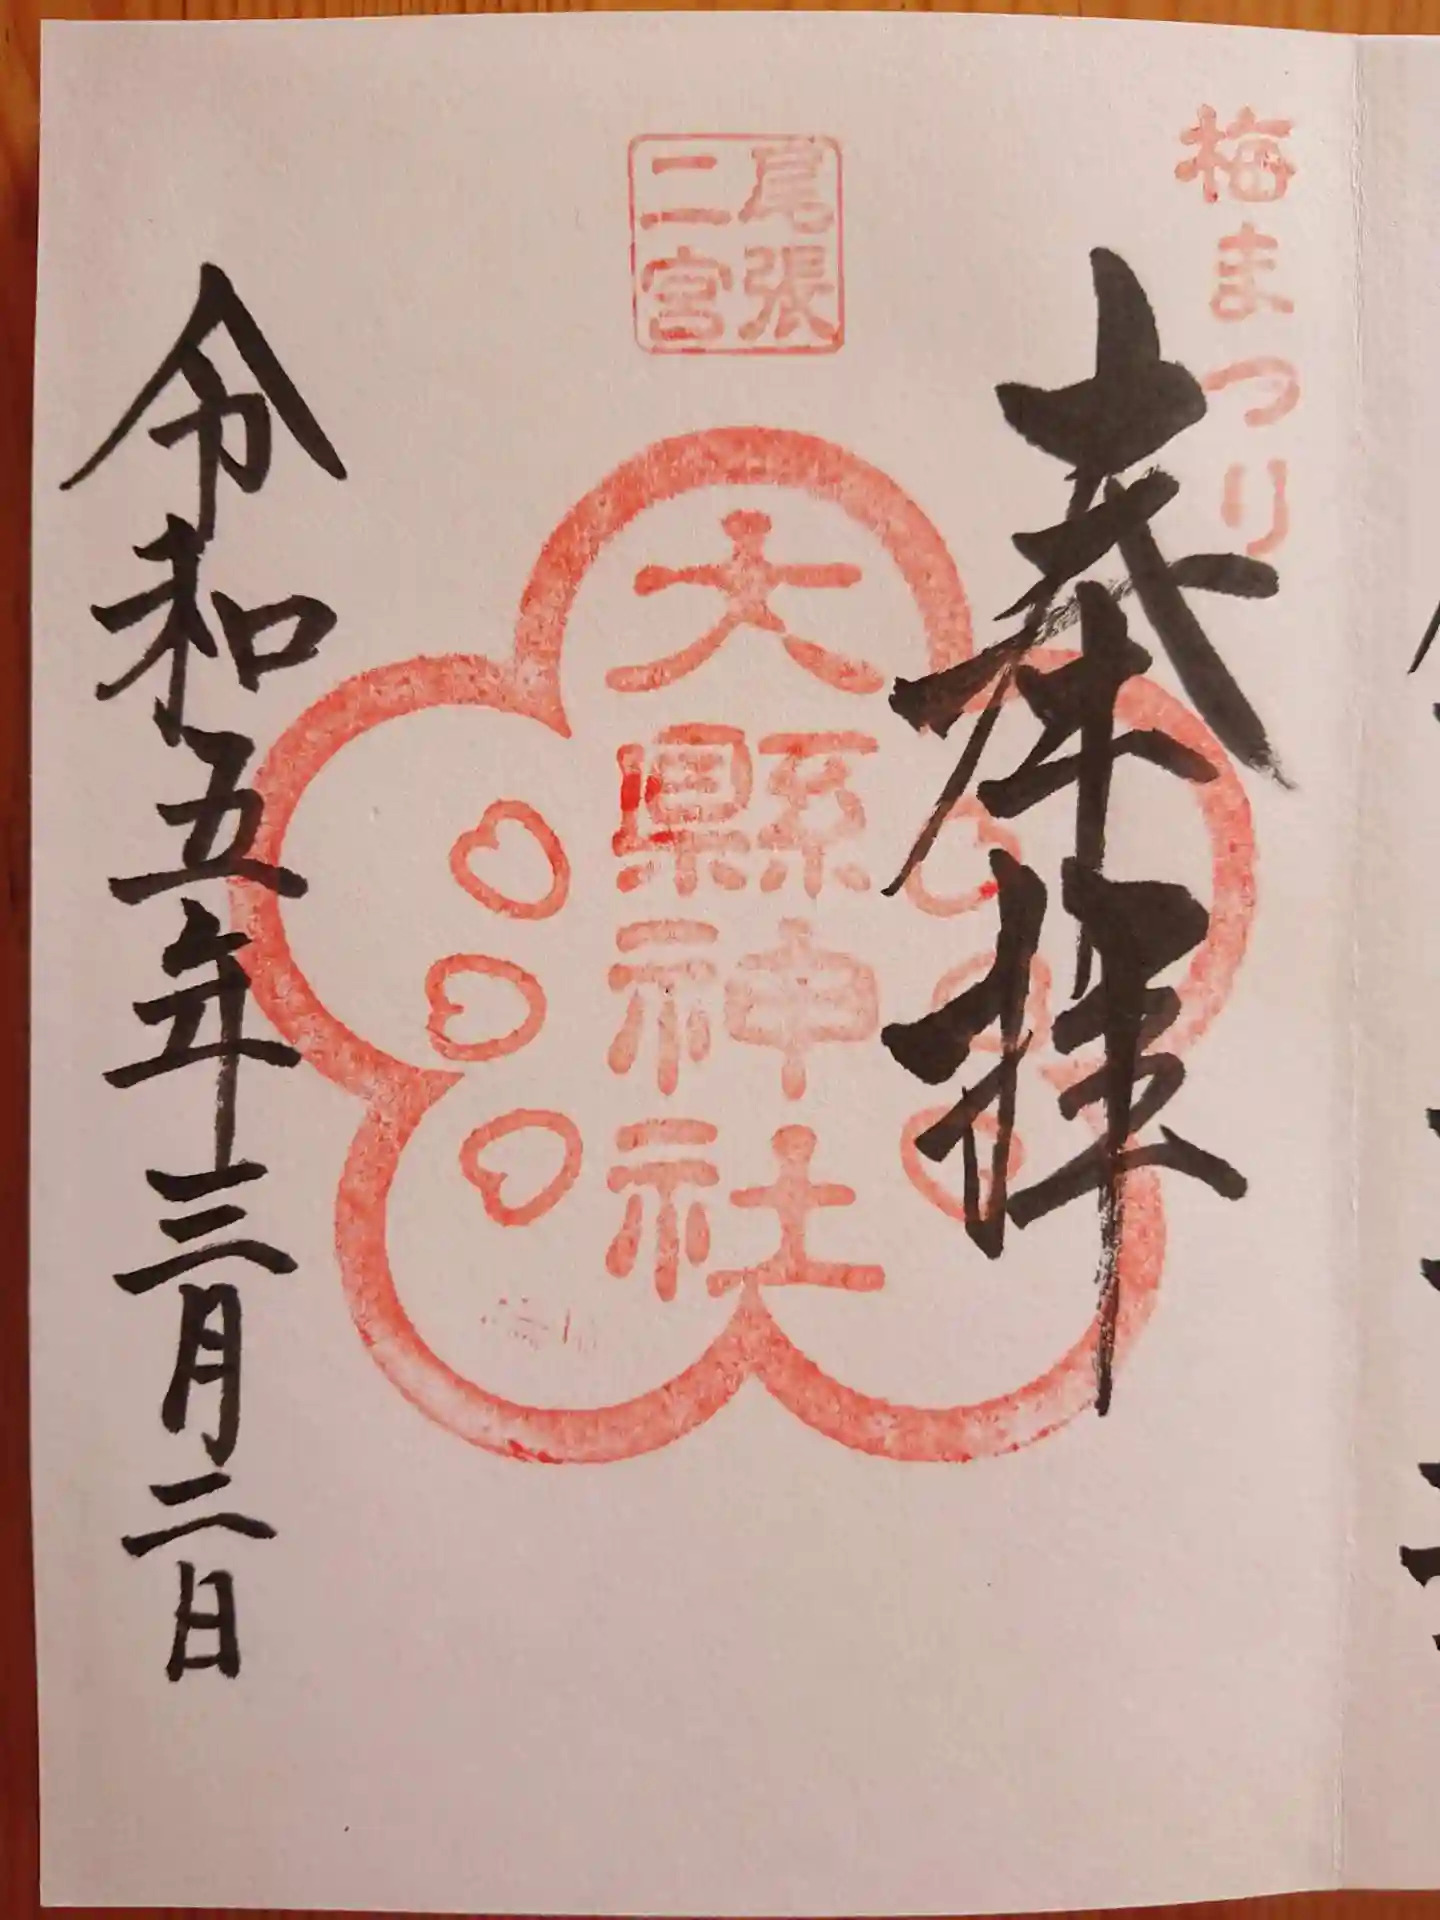 梅まつり
奉拝
尾張
二宮
大縣神社
令和五年三月二日